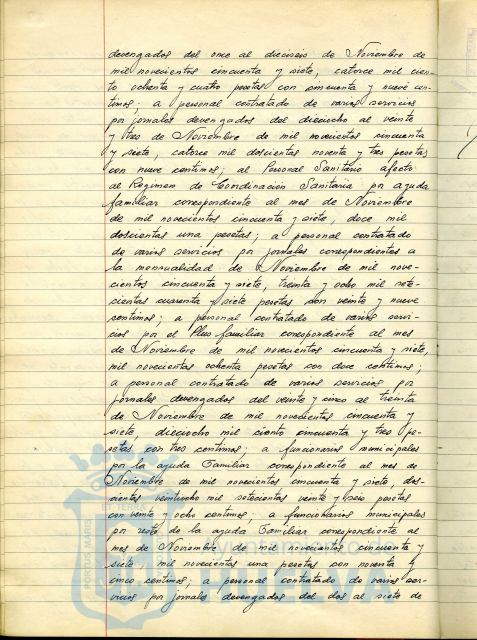 devengados del once al dieciseis de Noviembre de
mil novecientos cincuenta y siete, catorce mil cien-
to ochenta y cuatro pesetas con cincuenta y nueve cén-
timos; a personal contratado de varios servicios
por jornales devengados del dieciocho al veinte
y tres de Noviembre de mil novecientos cincuenta
y siete, catorce mil doscientas noventa y tres pesetas
con nueve centimos; al Personal Sanitario afecto
al Regimen de Coordinación Sanitaria por ayuda
familiar correspondiente al mes de Noviembre
de mil novecientos cincuenta y siete, doce mil
doscientas una pesetas; a personal contratado
de varios servicios por jornales correspondientes a
la mensualidad de Noviembre de mil nove-
cientos cincuenta y siete, treinta y ocho mil sete-
cientas cuarenta y siete pesetas con veinte y nueve
centimos; a personal contratado de varios servi-
cios por el Plus familiar correspondiente al mes
de Noviembre de mil novecientos cincuenta y siete,
mil novecientas ochenta pesetas con doce centimos;
a personal contratado de varios servicios por
jornales devengados del veinte y cinco al treinta
de Noviembre de mil novecientos cincuenta y
siete, dieciocho mil ciento cincuenta y tres pe-
setas con tres centimos; a funcionarios municipales
por la ayuda Familiar correspondiente al mes de
Noviembre de mil novecientos cincuenta y siete, dos-
cientas veintiocho mil setecientas veinte y seis pesetas
con veinte y ocho centimos; a funcionarios municipales
por resto de la ayuda Familiar correspondiente al
mes de Noviembre de mil novecientos cincuenta y
siete, mil novecientas una pesetas con noventa y
cinco centimos; a personal contratado de varios ser-
vicios por jornales devengados del dos al siete de
Ayuntamiento de
HUELVA
PORTUS MARIS